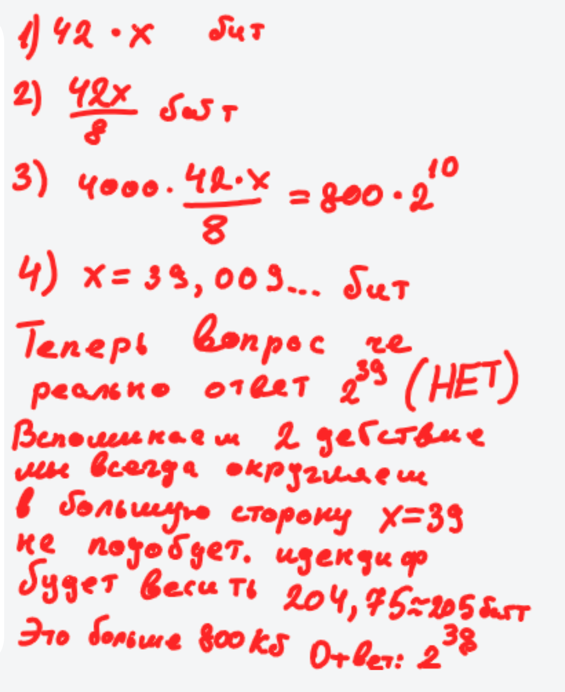 1) 42 · x бит
2) 42x/8 байт
3) 4000 · 42·x/8 = 800 · 2^10
4) x = 39,009... бит
Теперь вопрос че
реально ответ 2^39 (НЕТ)
Вспоминаем 2 действие
мы всегда округляем
в большую сторону x=39
не подойдет. идендиф
будет весить 204,75≈205 байт
Это больше 800 Кб Ответ: 2^38